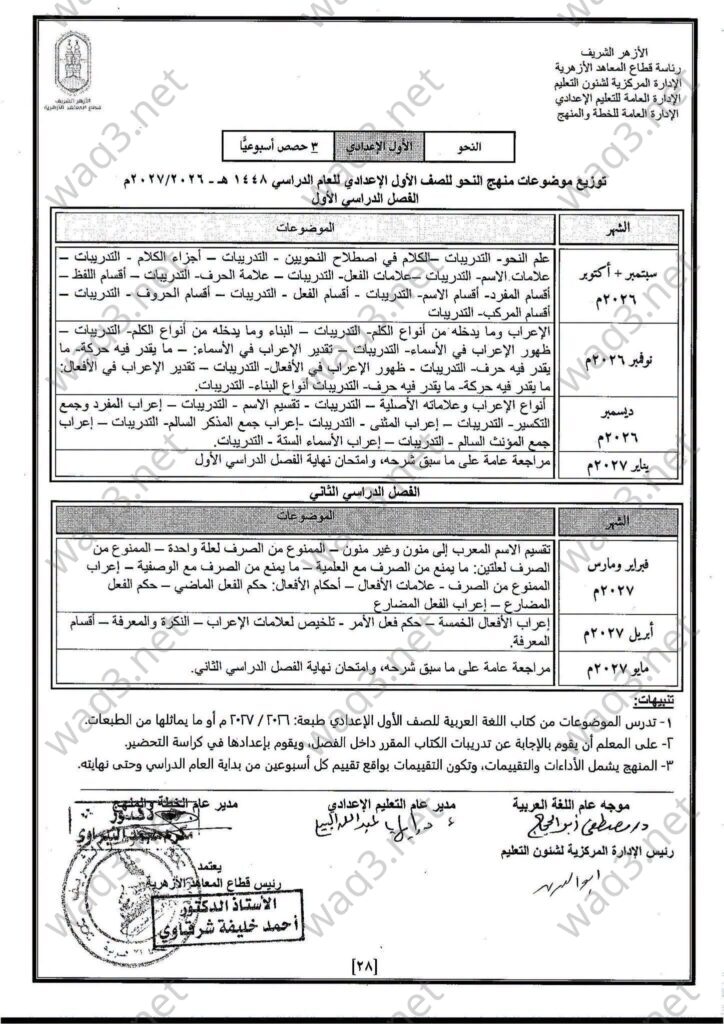 الأزهر الشريف
رئاسة قطاع المعاهد الأزهرية
الإدارة المركزية لشئون التعليم
الإدارة العامة للتعليم الإعدادي
الإدارة العامة للخطة والمنهج
الأزهر الشريف
قطاع المعاهد الأزهرية
النحو
الأول الإعدادي
٣ حصص أسبوعيًّا
توزيع موضوعات منهج النحو للصف الأول الإعدادي للعام الدراسي ١٤٤٨ هـ - ٢٠٢٧/٢٠٢٦م
الفصل الدراسي الأول
الشهر
الموضوعات
سبتمبر + أكتوبر
٢٠٢٦م
علم النحو- التدريبات –الكلام في اصطلاح النحويين - التدريبات – أجزاء الكلام - التدريبات –
علامات الاسم- التدريبات –علامات الفعل- التدريبات – علامة الحرف- التدريبات – أقسام اللفظ –
أقسام المفرد- أقسام الاسم- التدريبات - أقسام الفعل - التدريبات – أقسام الحروف - التدريبات –
أقسام المركب- التدريبات
نوفمبر ٢٠٢٦م
الإعراب وما يدخله من أنواع الكلم- التدريبات – البناء وما يدخله من أنواع الكلم- التدريبات –
ظهور الإعراب في الأسماء- التدريبات – تقدير الإعراب في الأسماء: – ما يقدر فيه حركة- ما
يقدر فيه حرف- التدريبات - ظهور الإعراب في الأفعال- التدريبات – تقدير الإعراب في الأفعال:
ما يقدر فيه حركة- ما يقدر فيه حرف- التدريبات أنواع البناء- التدريبات.
ديسمبر
٢٠٢٦م
أنواع الإعراب وعلاماته الأصلية – التدريبات - تقسيم الاسم - التدريبات – إعراب المفرد وجمع
التكسير- التدريبات – إعراب المثنى - التدريبات -إعراب جمع المذكر السالم- التدريبات – إعراب
جمع المؤنث السالم - التدريبات – إعراب الأسماء الستة - التدريبات.
يناير ٢٠٢٧م
مراجعة عامة على ما سبق شرحه، وامتحان نهاية الفصل الدراسي الأول
الفصل الدراسي الثاني
الشهر
الموضوعات
فبراير ومارس
٢٠٢٧م
تقسيم الاسم المعرب إلى منون وغير منون – الممنوع من الصرف لعلة واحدة – الممنوع من
الصرف لعلتين: ما يمنع من الصرف مع العلمية – ما يمنع من الصرف مع الوصفية – إعراب
الممنوع من الصرف - علامات الأفعال – أحكام الأفعال: حكم الفعل الماضي – حكم الفعل
المضارع – إعراب الفعل المضارع
أبريل ٢٠٢٧م
إعراب الأفعال الخمسة – حكم فعل الأمر - تلخيص لعلامات الإعراب – النكرة والمعرفة – أقسام
المعرفة.
مايو ٢٠٢٧م
مراجعة عامة على ما سبق شرحه، وامتحان نهاية الفصل الدراسي الثاني.
تنبيهات:
١- تدرس الموضوعات من كتاب اللغة العربية للصف الأول الإعدادي طبعة: ٢٠٢٦ / ٢٠٢٧ م أو ما يماثلها من الطبعات.
٢- على المعلم أن يقوم بالإجابة عن تدريبات الكتاب المقرر داخل الفصل، ويقوم بإعدادها في كراسة التحضير.
٣- المنهج يشمل الأداءات والتقييمات، وتكون التقييمات بواقع تقييم كل أسبوعين من بداية العام الدراسي وحتى نهايته.
موجه عام اللغة العربية
مدير عام التعليم الإعدادي
مدير عام الخطة والمنهج
رئيس الإدارة المركزية لشئون التعليم
يعتمد
رئيس قطاع المعاهد الأزهرية
الأستاذ الدكتور
أحمد خليفة شرقاوي
[٢٨]
waq3.net